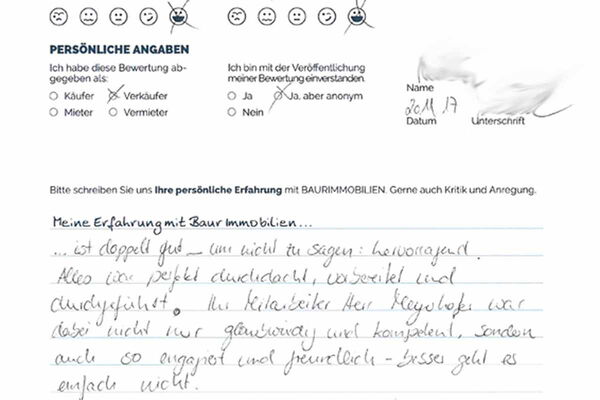 PERSÖNLICHE ANGABEN
Ich habe diese Bewertung ab-
gegeben als:
Käufer Verkäufer
Mieter Vermieter
Ich bin mit der Veröffentlichung
meiner Bewertung einverstanden.
Ja Ja, aber anonym
Nein
Name
2011 17
Datum Unterschrift
Bitte schreiben Sie uns Ihre persönliche Erfahrung mit BAURIMMOBILIEN. Gerne auch Kritik und Anregung.
Meine Erfahrung mit Baur Immobilien...
... ist doppelt gut – um nicht zu sagen: hervorragend.
Alles war perfekt durchdacht, vorbereitet und
durchgeführt. Ihr Mitarbeiter Herr Meyrhofer war
dabei nicht nur glaubwürdig und kompetent, sondern
auch so engagiert und freundlich – besser geht es
einfach nicht.